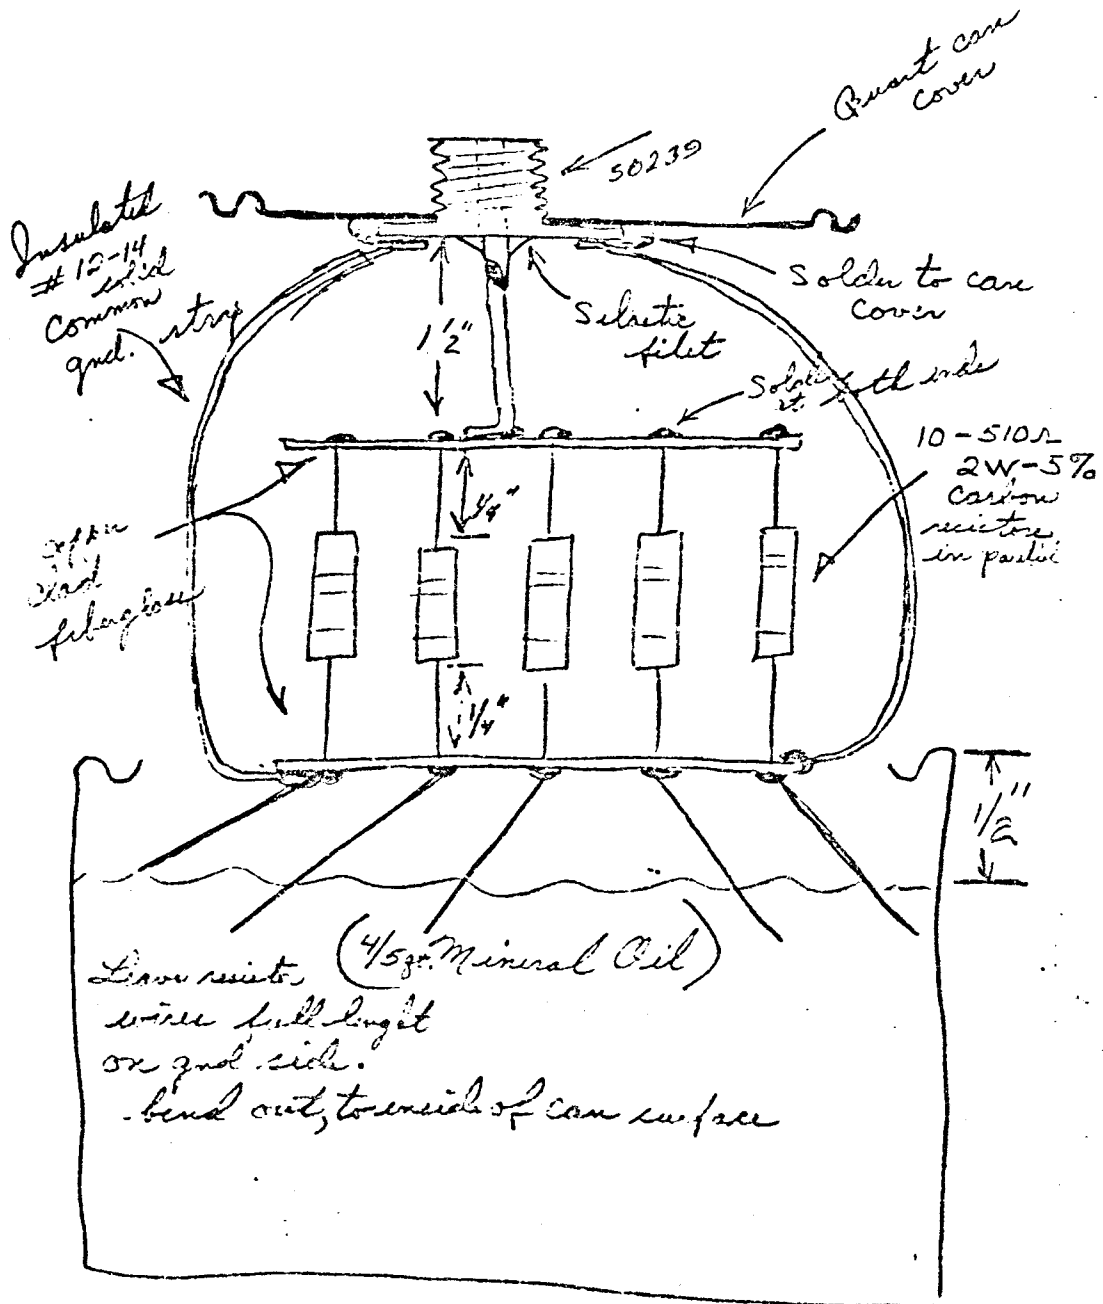 Quart can
cover
SO239
Insulated
# 12-14
solid
common
gnd. strap
Solder to can
cover
Silastic
filet
1 1/2"
Solder
at both ends
10-510Ω
2W-5%
carbon
resistors
in parallel
1/4"
clad
fiberglass
1/4"
1/2"
(4/5 qt. Mineral Oil)
Leave resistor
wires full lenght
on gnd side.
bend out, to inside of can surface